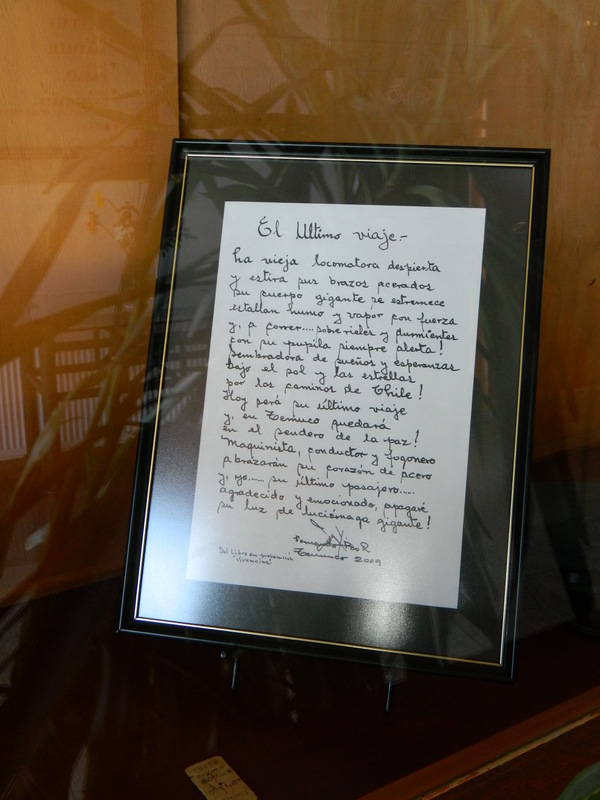 El Ultimo viaje.-
La vieja locomotora despierta
y estira sus brazos acerados
su cuerpo gigante se estremece
estallan humo y vapor con fuerza
y, a correr.... sobre rieles y durmientes
con su pupila siempre alerta!
Sembradora de sueños y esperanzas
bajo el sol y las estrellas
por los caminos de Chile!
Hoy será su último viaje
y, en Temuco quedará
en el sendero de la paz!
Maquinista, conductor y fogonero
abrazarán su corazón de acero
y, yo...... su último pasajero.....
agradecido y emocionado, apagaré
su luz de luciérnaga gigante!
Temuco 2009
Del Libro en
"Vivencias"